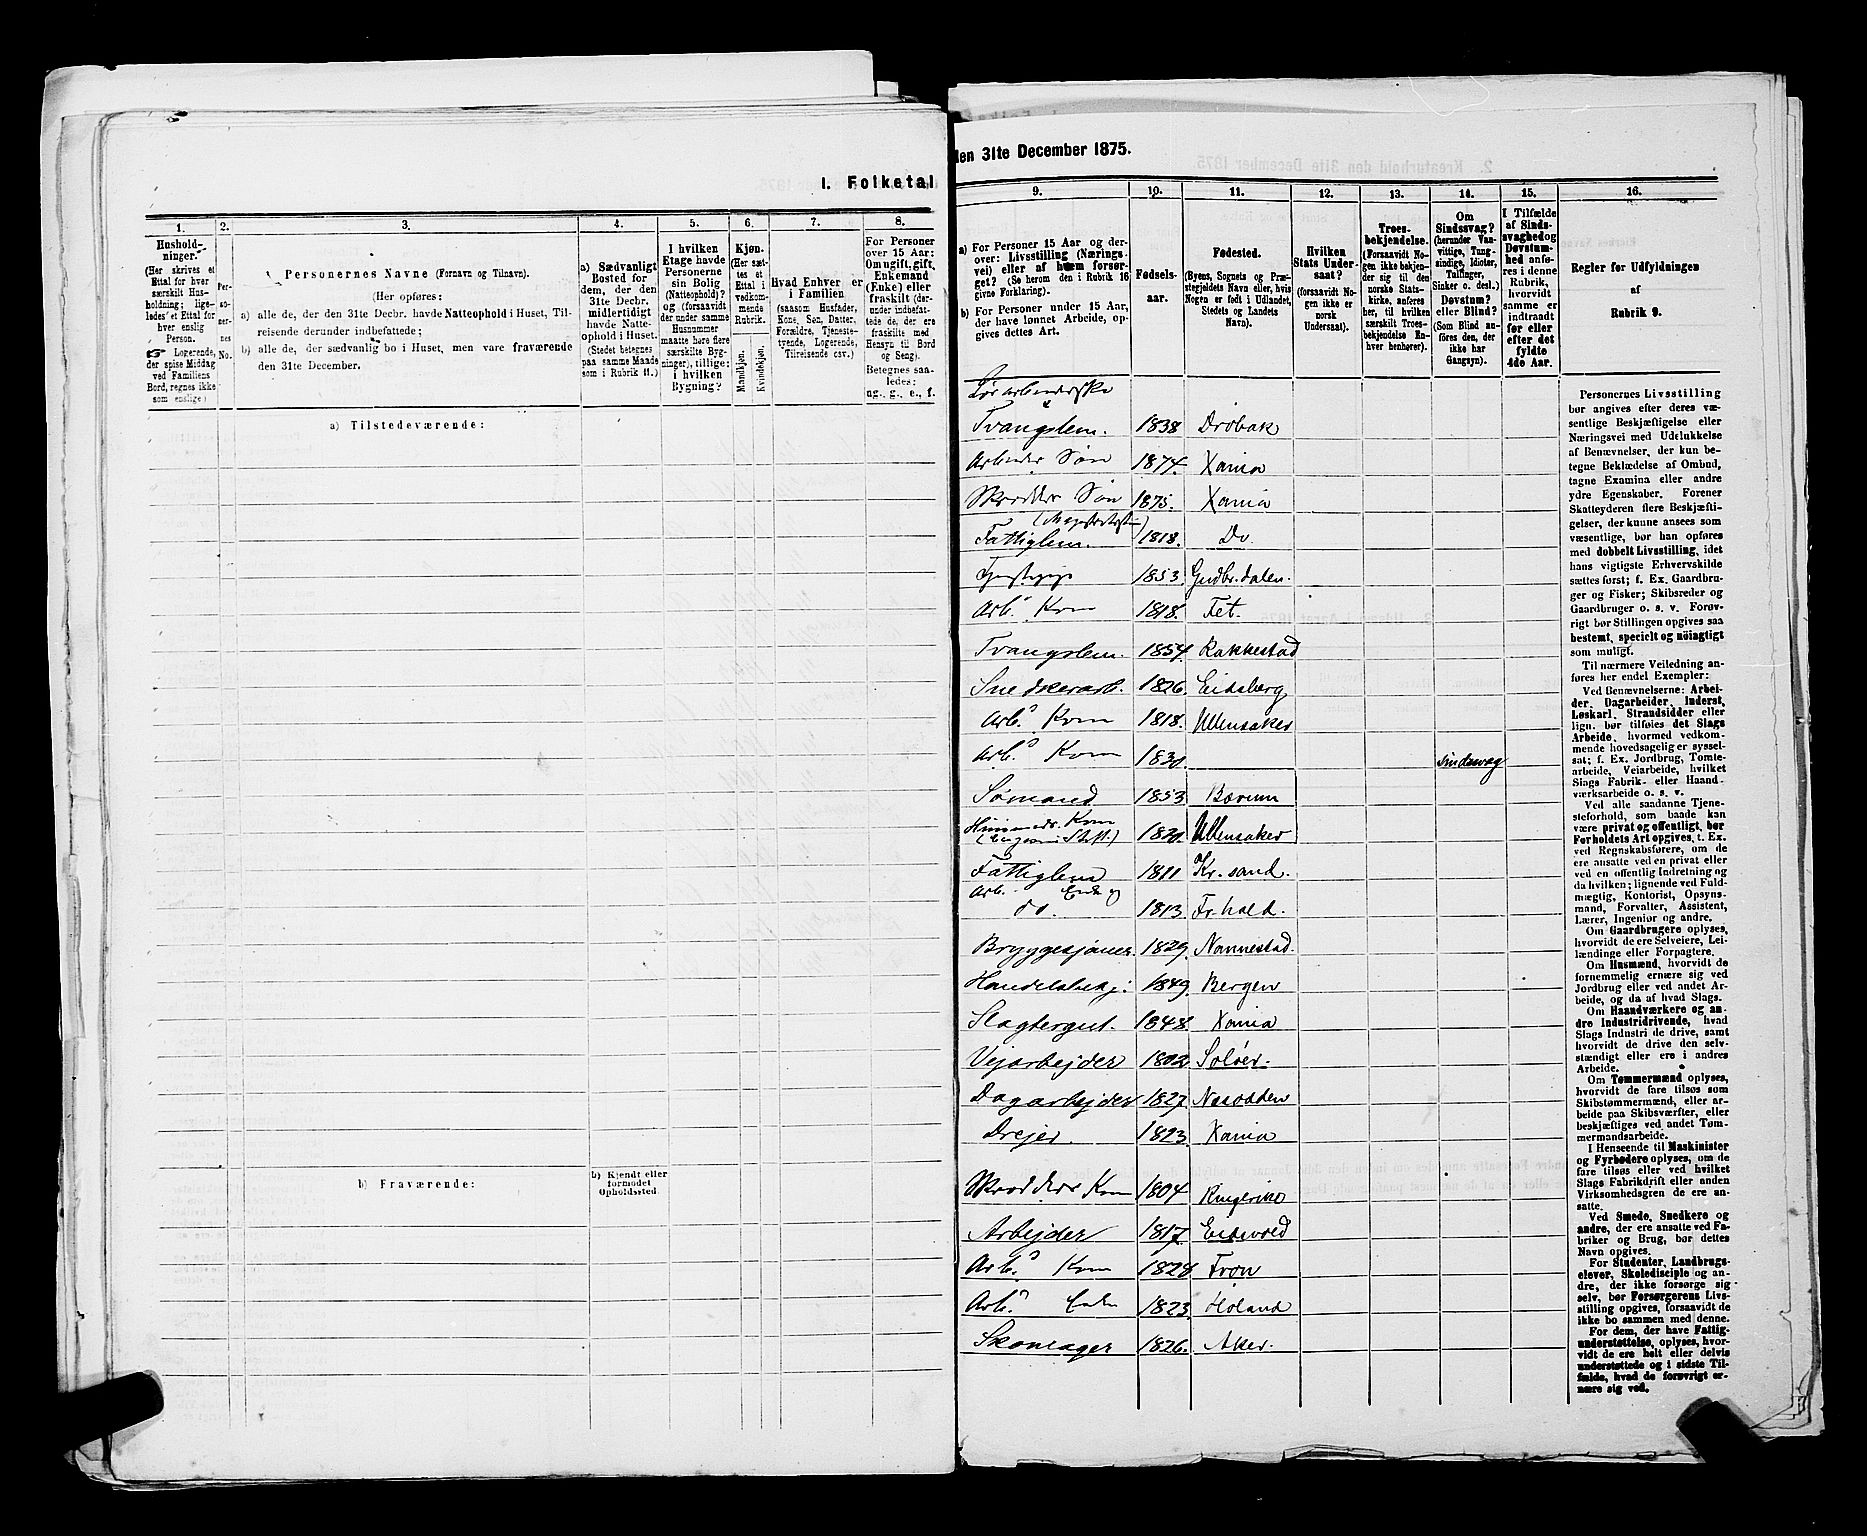 I. Folketal
1. 2. 3. 4. 5. 6. 7. 8.
Hushold-
ninger.
(Her skrives et
Ettal for hver
særskilt Hus-
holdning; lige-
ledes et Ettal for
hver enslig
Person.
Logerende,
der spise Middag
ved Familiens
Bord, regnes ikke
som enslige)
Per-
so-
ner-
nes
No.
Personernes Navne (Fornavn og Tilnavn).
(Her opføres:
a) alle de, der den 31te Decbr. havde Natteophold i Huset, Til-
reisende derunder indbefattede;
b) alle de, der sædvanlig bo i Huset, men vare fraværende
den 31te December.
a) Sædvanligt
Bosted for
dem, der den
31te Decbr.
midlertidigt
havde Natte-
ophold i Huset.
(Stedet betegnes
paa samme Maade
som i Rubrik 11.)
I hvilken
Etage havde
Personerne
sin Bolig
(Natteophold)?
og (forsaavidt
der under samme
Husnummer
maatte høre flere
særskilte Byg-
ninger), tillige:
i hvilken
Bygning?
Kjøn.
(Her sæt-
tes et
Ettal i
vedkom-
mende
Rubrik.
Mandkjøn.
Kvindekjøn.
Hvad Enhver er
i Familien
(saasom Husfader,
Kone, Søn, Datter,
Forældre, Tjeneste-
tyende, Logerende,
Tilreisende csv.)
For Personer
over 15 Aar:
Om ugift, gift,
Enkemand
(Enke) eller
fraskilt (der-
under indbefat-
tede de, der ere
fraskilte med
Hensyn til Bord
og Seng).
Betegnes saa-
ledes:
ug., g., e., f.
a) Tilstedeværende:
b) Fraværende:
b) Kjendt eller
formodet
Opholdssted.
den 31te December 1875.
9. 10. 11. 12. 13. 14. 15. 16.
a) For Personer 15 Aar og der-
over: Livsstilling (Nærings-
vei) eller af hvem forsør-
get? (Se herom den i Rubrik 16
givne Forklaring).
b) For Personer under 15 Aar,
der have lønnet Arbeide, op-
gives dettes Art.
Fødsels-
aar.
Fødested.
(Byens, Sognets og Præ-
stegjeldets Navn eller, hvis
Nogen er født i Udlandet,
Stedets og Landets
Navn).
Hvilken
Stats Under-
saat?
(forsaavidt No-
gen ikke er
norsk
Undersaat).
Troes-
bekjendelse.
(Forsaavidt No-
gen ikke bekjen-
der sig til den
norske Stats-
kirke, anføres
her, til hvilken
særskilt Troes-
bekjendelse En-
hver henhører).
Om
Sindssvag?
(herunder Van-
vittige, Tung-
sindige, Idioter,
Tullinger,
Sinker o. desl.)
Døvstum?
eller Blind?
(Som Blind an-
føres den, der
ikke har
Gangsyn).
I Tilfælde
af Sinds-
svaghed og
Døvstum-
hed anfø-
res i denne
Rubrik,
hvorvidt
samme er
indtraadt
før eller
efter det
fyldte
4de Aar.
Regler for Udfyldningen
af
Rubrik 9.
Tvangslem. 1838 Drøbak
Arbeider Søn 1874. Xania
Skrædder Søn 1875. Xania
Fattiglem. 1818. Do
1853 Gudbr.dalen.
Arb. Kone 1818. Fet.
Tvangslem. 1854. Rakkestad
Snedkerarb. 1826. Eidsberg
Arb. Kone 1818. Ullensaker
Arb. Kone 1830. Sindssvag
Sømand 1853 Bærum
Husmands. Kone
1830. Ullensaker
Fattiglem 1811 Kr.sand.
Arb. Enke
do. 1813. Fr.hald.
Bryggesjouer. 1829. Nannestad.
Handelsbetj: 1849. Bergen
Slagtergut. 1848. Xania
Vejarbejder 1802 Soløer.
Dagarbejder 1827 Næsodden
Drejer. 1823. Xania
Skrædders Kone 1804 Ringerike
Arbejder 1817. Eidsvold
Arb. Kone 1828 Fron
Arb. Enke 1823. Høland
Skomager 1826. Aker.
Personernes Livsstilling
bør angives efter deres væ-
sentlige Beskjæftigelse eller
Næringsvei med Udelukkelse
af Benævnelser, der kun be-
tegne Beklædelse af Ombud,
tagne Examina eller andre
ydre Egenskaber. Forener
Skatteyderen flere Beskjæfti-
gelser, der kunne ansees som
væsentlige, bør han opføres
med dobbelt Livsstilling, idet
hans vigtigste Erhvervskilde
sættes først; f. Ex. Gaardbru-
ger og Fisker; Skibsreder og
Gaardbruger o. s. v. Forøv-
rigt bør Stillingen opgives saa
bestemt, specielt og nöiagtigt
som muligt.
Til nærmere Veiledning an-
føres her endel Exempler:
Ved Benævnelserne: Arbei-
der, Dagarbeider, Inderst,
Løskarl, Strandsidder eller
lign. bør tilføies det Slags
Arbeide, hvormed vedkom-
mende hovedsagelig er syssel-
sat; f. Ex. Jordbrug, Tomte-
arbeide, Veiarbeide, hvilket
Slags Fabrik- eller Haand-
værksarbeide o. s. v.
Ved alle saadanne Tjene-
steforhold, som baade kan
være privat og offentligt, bør
Forholdets Art opgives, t. Ex.
ved Regnskabsførere, om de
ere ansatte ved en privat eller
ved en offentlig Indretning og
da hvilken; lignende ved Fuld-
mægtig, Kontorist, Opsyns-
mand, Forvalter, Assistent,
Lærer, Ingeniør og andre.
Om Gaardbrugere oplyses,
hvorvidt de ere Selveiere, Lei-
lændinge eller Forpagtere.
Om Husmænd, hvorvidt de
fornemmelig ernære sig ved
Jordbrug eller ved andet Ar-
beide, og da af hvad Slags.
Om Haandværkere og an-
dre Industridrivende, hvad
Slags Industri de drive, samt
hvorvidt de drive den selv-
stændigt eller ere i andres
Arbeide.
Om Tømmermænd oplyses,
hvorvidt de fare tilsøs som
Skibstømmermænd, eller ar-
beide paa Skibsværfter, eller
beskjæftiges ved andet Tøm-
mermandsarbeide.
I Henseende til Maskinister
og Fyrbødere oplyses, om de
fare tilsøs eller ved hvilket
Slags Fabrikdrift eller anden
Virksomhedsgren de ere an-
satte.
Ved Smede, Snedkere og
andre, der ere ansatte ved Fa-
briker og Brug, bør dettes
Navn opgives.
For Studenter, Landbrugs-
elever, Skoledisciple og an-
dre, der ikke forsørge sig
selv, bør Forsørgerens Livs-
stilling opgives, forsaavidt de
ikke bo sammen med denne.
For dem, der have Fattig-
understøttelse, oplyses, hvor-
vidt de ere helt eller delvis
understøttede og i sidste Til-
fælde, hvad de forøvrigt er-
nære sig ved.